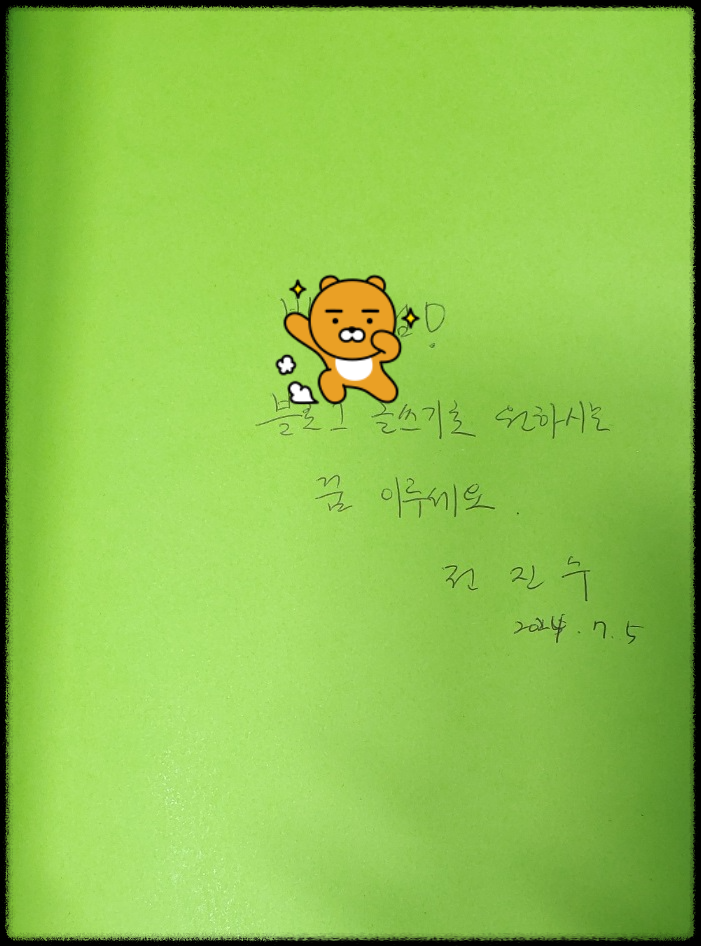 블로그 글쓰기로 원하시는
꿈 이루세요.
전 진 수
2024. 7. 5